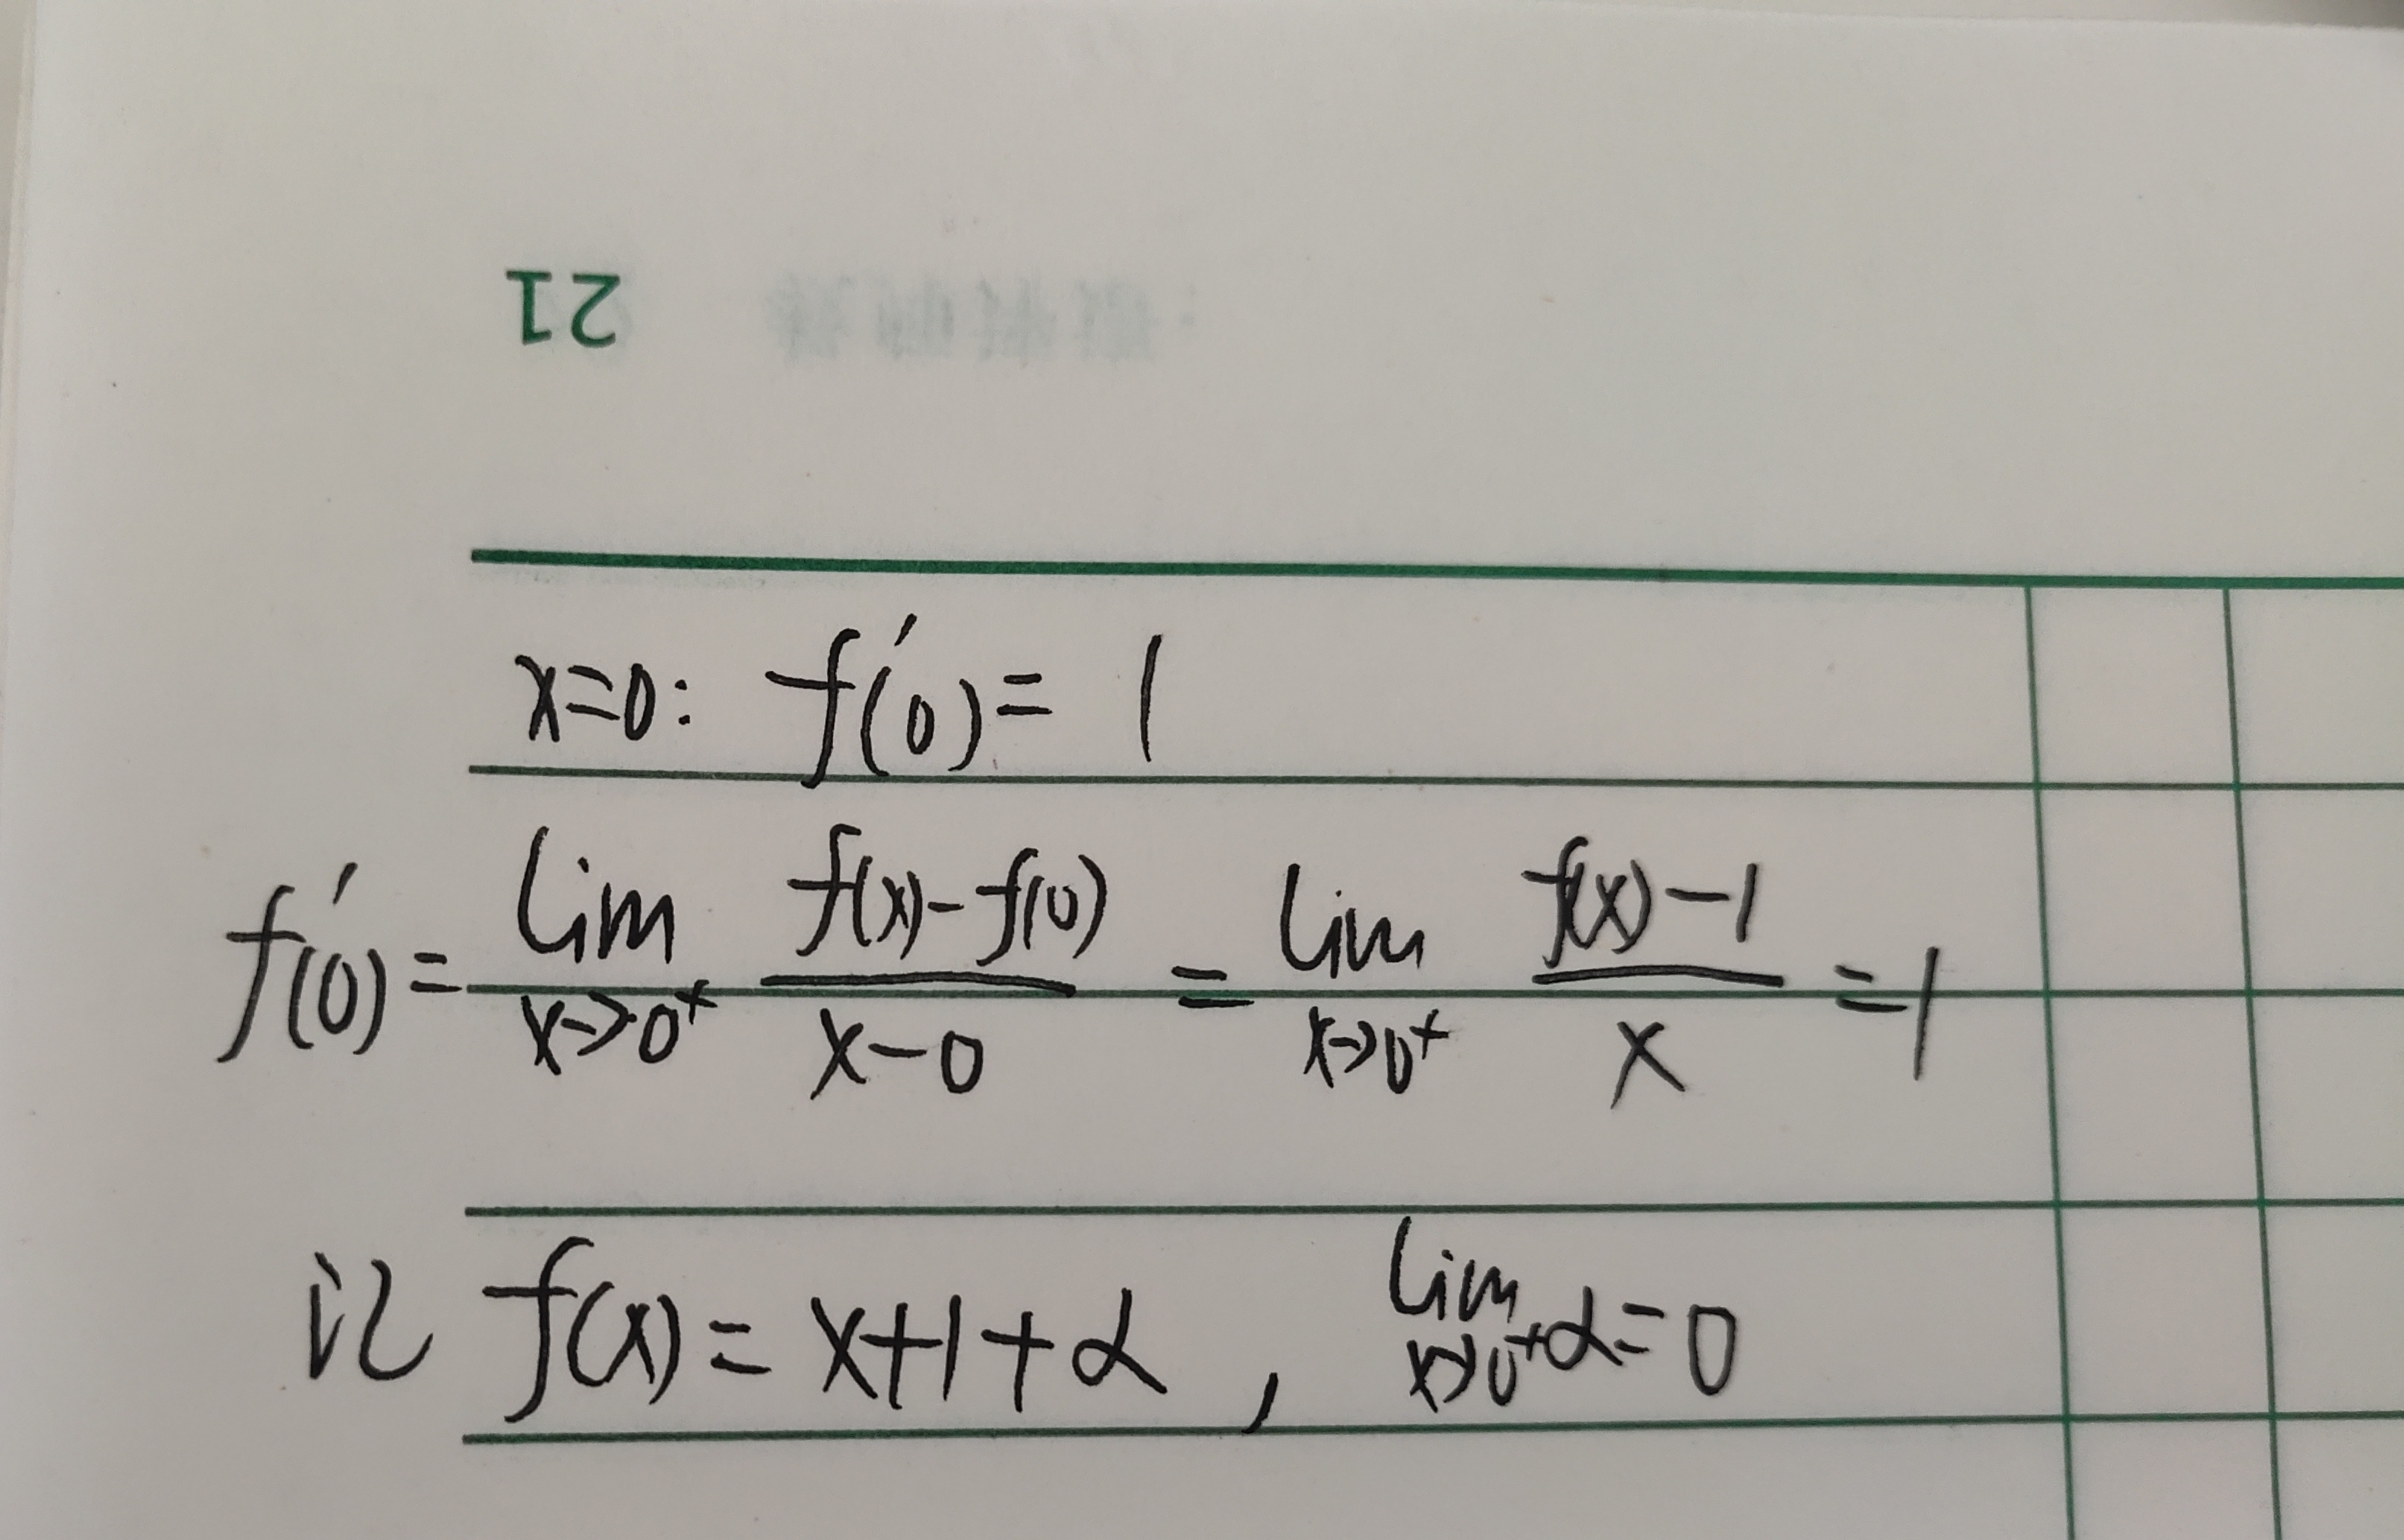 21
x=0: f'(0)= 1
f'(0)= lim x→0⁺ (f(x)-f(0))/(x-0) = lim x→0⁺ (f(x)-1)/x =1
记 f(x)= x+1+α , lim x→0⁺ α=0